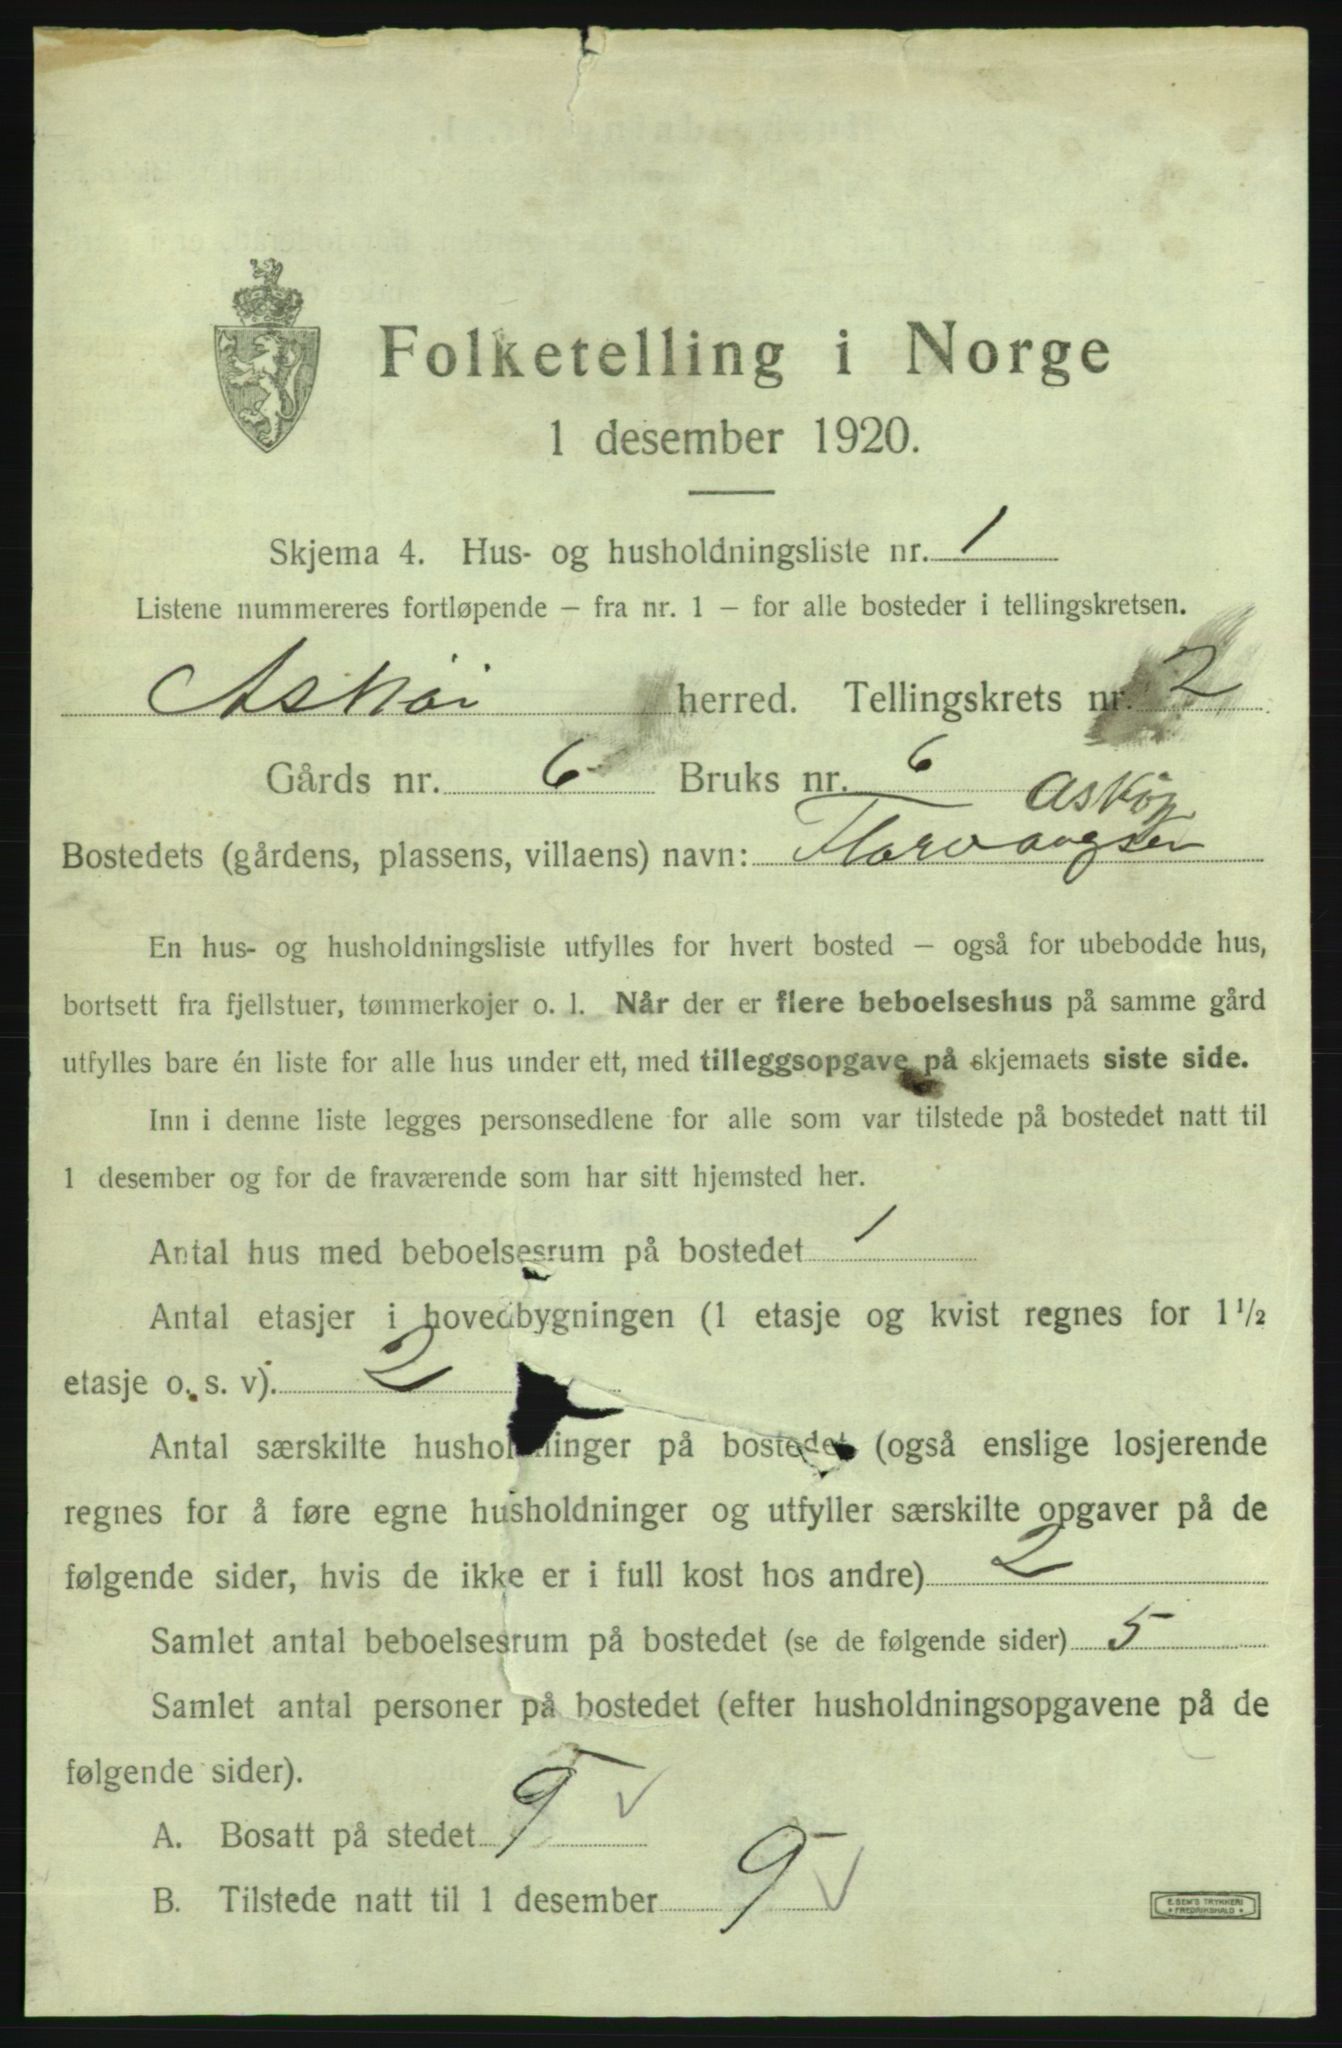 Folketelling i Norge
1 desember 1920.
Skjema 4. Hus- og husholdningsliste nr. 1
Listene nummereres fortløpende – fra nr. 1 – for alle bosteder i tellingskretsen.
Askøi herred. Tellingskrets nr. 2
Gårds nr. 6 Bruks nr. 6
Askøy
Bostedets (gårdens, plassens, villaens) navn:
En hus- og husholdningsliste utfylles for hvert bosted – også for ubebodde hus,
bortsett fra fjellstuer, tømmerkojer o. l. Når der er flere beboelseshus på samme gård
utfylles bare én liste for alle hus under ett, med tilleggsopgave på skjemaets siste side.
Inn i denne liste legges personsedlene for alle som var tilstede på bostedet natt til
1 desember og for de fraværende som har sitt hjemsted her.
Antal hus med beboelsesrum på bostedet 1
Antal etasjer i hovedbygningen (1 etasje og kvist regnes for 1 1/2
etasje o. s. v). 2
Antal særskilte husholdninger på bostedet (også enslige losjerende
regnes for å føre egne husholdninger og utfyller særskilte opgaver på de
følgende sider, hvis de ikke er i full kost hos andre) 2
Samlet antal beboelsesrum på bostedet (se de følgende sider) 5
Samlet antal personer på bostedet (efter husholdningsopgavene på de
følgende sider).
A. Bosatt på stedet 9 ✓
B. Tilstede natt til 1 desember 9 ✓
E. SEM'S TRYKKERI
FREDRIKSHALD